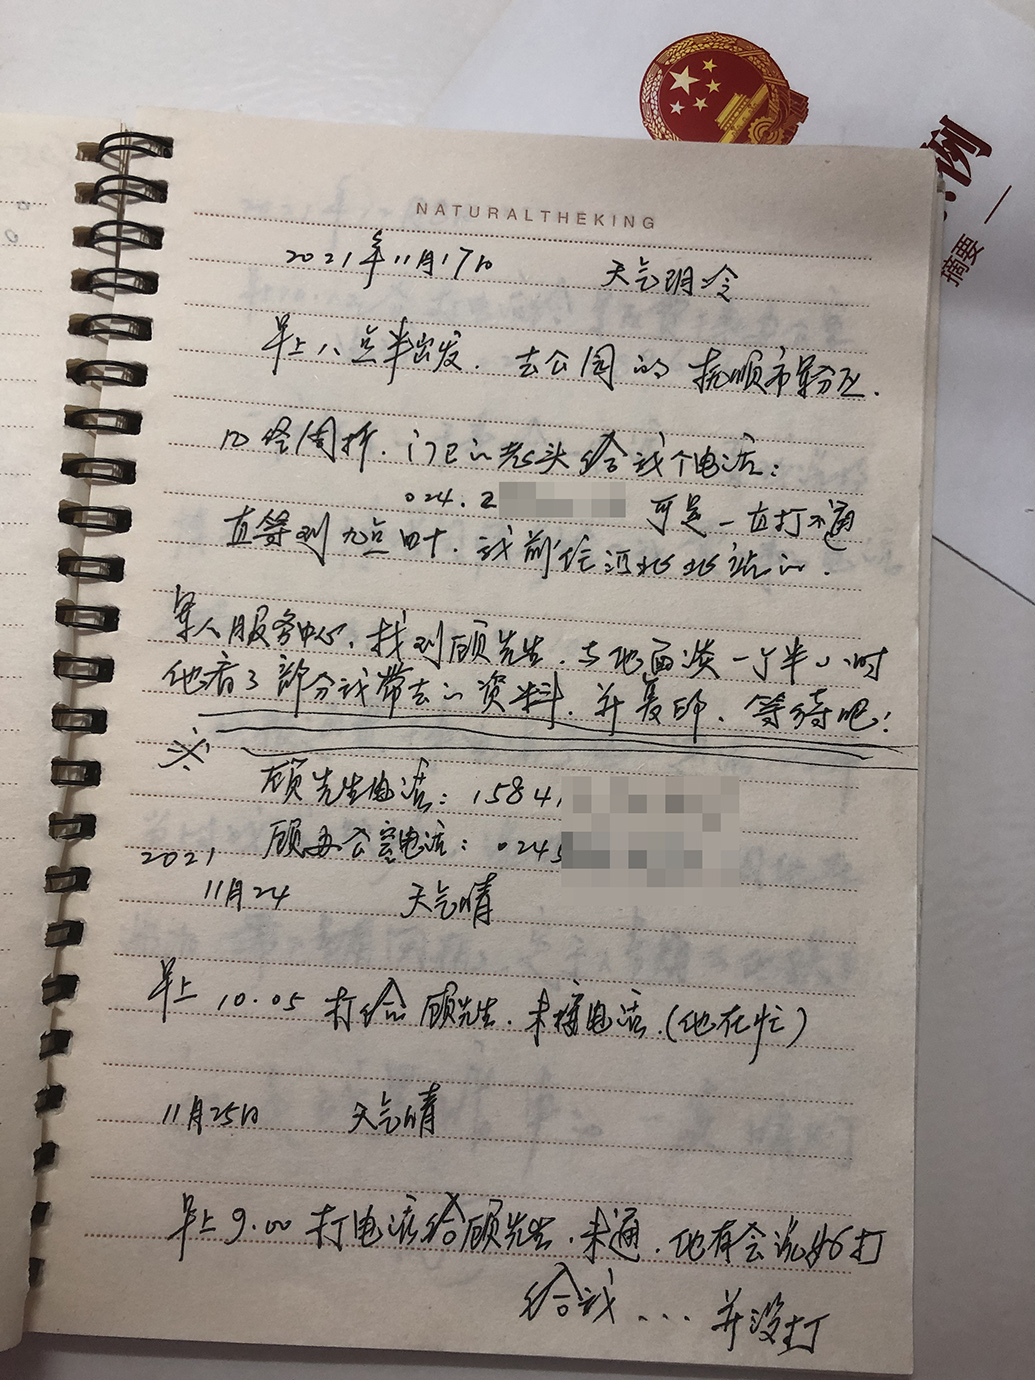 例
摘要
NATURALTHEKING
2021年11月17日 天气阴冷
早上八点半出发. 去公园的抚顺市军分区.
几经周折. 门卫的老头给我个电话:
024.2 可是一直打不通
直等到九点四十. 我前往河北北站的.
军人服务中心, 找到顾先生. 与他面谈一个半小时
他看了部分我带去的资料. 并复印. 等待吧!
※
顾先生电话: 15841
顾办公室电话: 0245
2021
11月24 天气晴
早上 10.05 打给顾先生. 未接电话.(他在忙)
11月25日 天气晴
早上9.00 打电话给顾先生. 未通. 他有会说好打
给我 ... 并没打